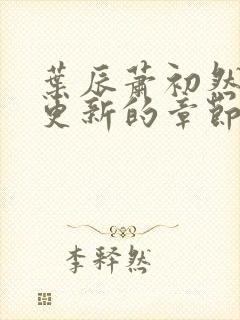 葉辰蕭初然
更新的章節
李释然